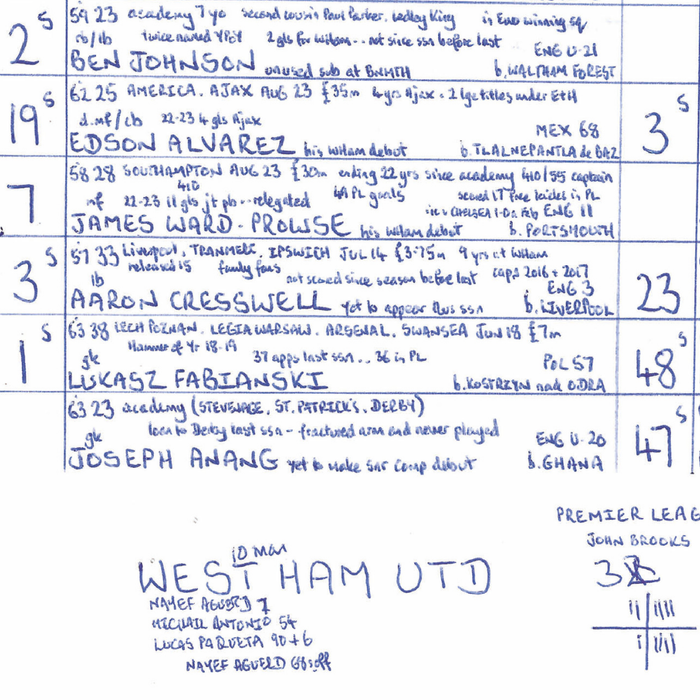 2 S
59 23 academy 7yo second cousin Paul Parker, Ledley King in Euro winning sq
rb/lb twice named YPOY 2 gls for WHam.. not since ssn before last ENG U-21
BEN JOHNSON unused sub at BNMTH b. WALTHAM FOREST
19 S
62 25 AMERICA. AJAX AUG 23 £35m 4 yrs Ajax - 2 lge titles under EtH
d.mf/cb 22-23 4 gls Ajax MEX 68
EDSON ALVAREZ his WHam debut b. TLALNEPANTLA de BAZ
3 S
7 S
58 28 SOUTHAMPTON AUG 23 £30m ending 22 yrs since academy 410/55 captain
410 49 PL goals scored 17 free kicks in PL
mf 22-23 11 gls jt pb.. relegated CHELSEA 1-0 Feb ENG 11
JAMES WARD-PROWSE his WHam debut b. PORTSMOUTH
3 S
57 33 Liverpool, TRANMERE, IPSWICH JUL 14 £3.75m 9 yrs at WHam
released 15 family fans not scored since season before last caps 2016 + 2017
lb ENG 3
AARON CRESSWELL yet to appear this ssn b. LIVERPOOL
23
1 S
63 38 LECH POZNAN. LEGIA WARSAW. ARSENAL. SWANSEA JUN 18 £7m
Hammer of Yr 18-19
gk 37 apps last ssn.. 36 in PL POL 57
LUKASZ FABIANSKI b. KOSTRZYN nad ODRA
48 S
63 23 academy (STEVENAGE, ST. PATRICK'S, DERBY)
loan to Derby last ssn - fractured arm and never played
gk ENG U-20
JOSEPH ANANG yet to make snr comp debut b. GHANA
47 S
PREMIER LEAG
JOHN BROOKS
10 man
WEST HAM UTD
3
NAYEF AGUERD 7
MICHAIL ANTONIO 54
LUCAS PAQUETA 90+6
NAYEF AGUERD 68 s.off